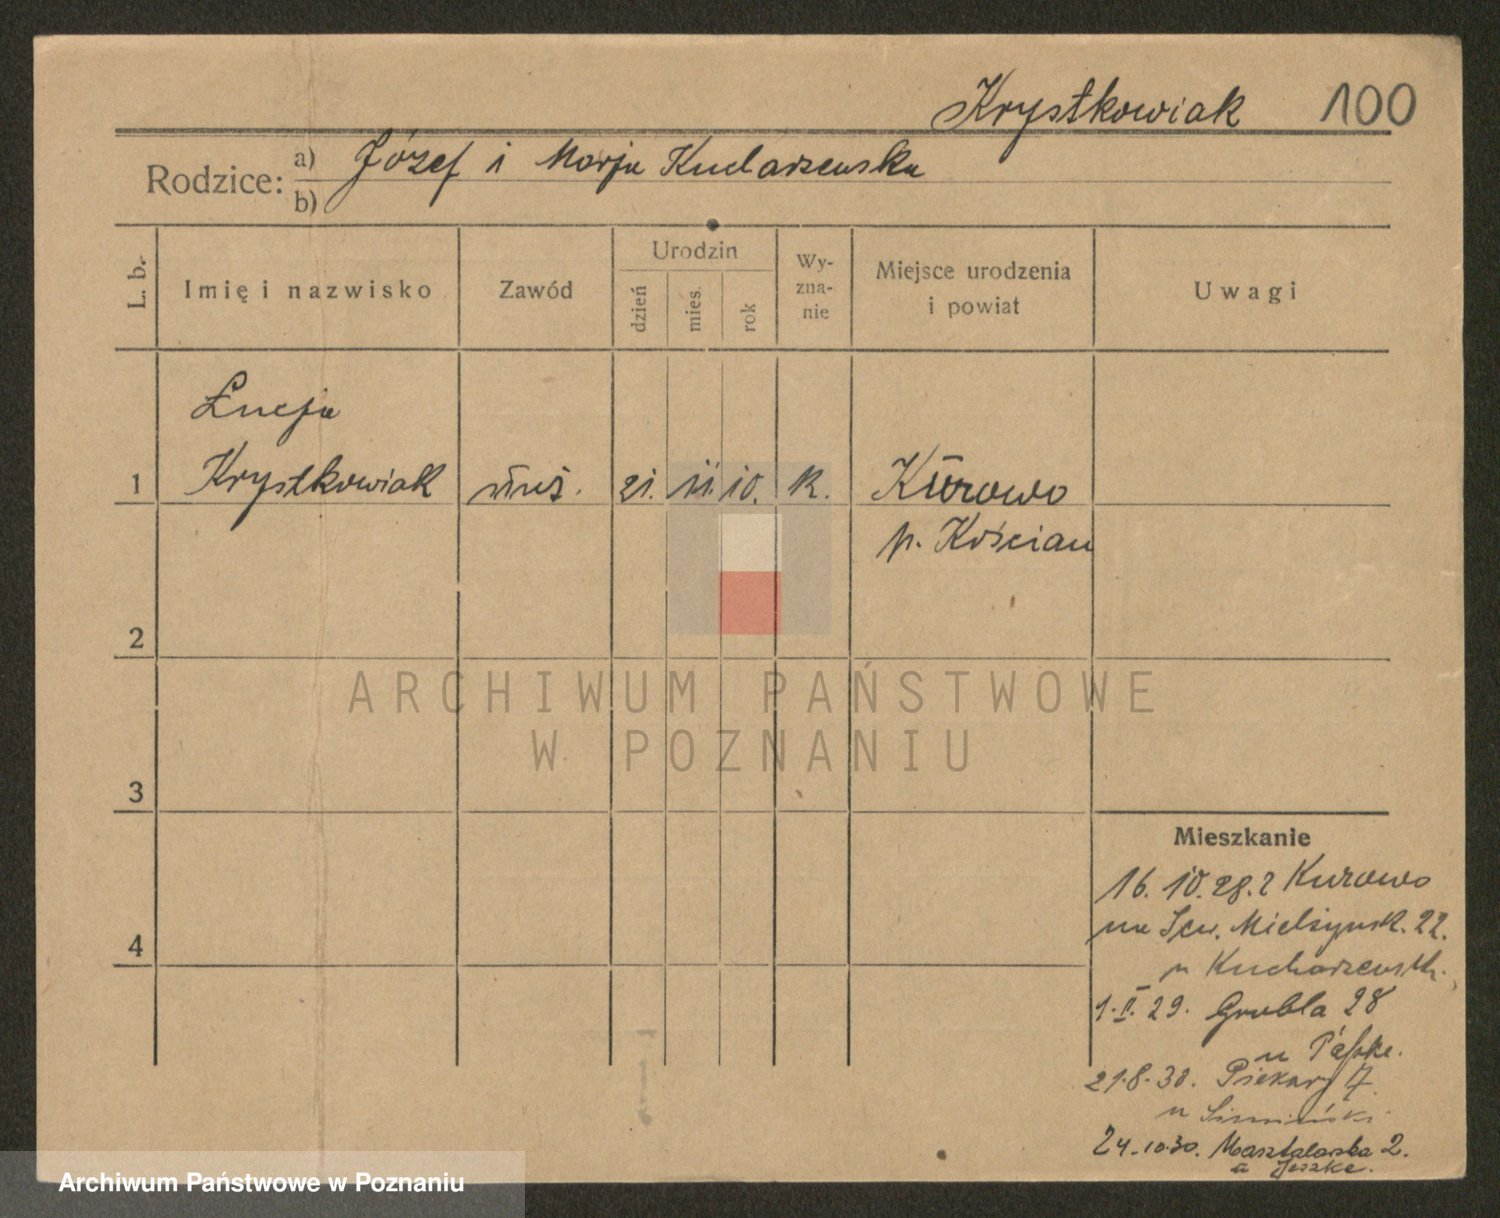 Krystkowiak 100
Rodzice: a) Józef i Marja Kucharzewska
b)
L. b. Imię i nazwisko Zawód Urodzin dzień mies. rok Wyznanie Miejsce urodzenia i powiat Uwagi
Łucja
1 Krystkowiak 21. 11. 10. k. Kurowo
p. Kościan
2
ARCHIWUM PAŃSTWOWE
W POZNANIU
3
Mieszkanie
16. 10. 28. z Kurowo
na Sew. Mielżyńsk. 22.
4
u Kucharzewsk.
1. II. 29. Grobla 28
u
21.8.30. Piekary 7
u
24.10.30. Masztalarska 2.
u Jeszke.
Archiwum Państwowe w Poznaniu